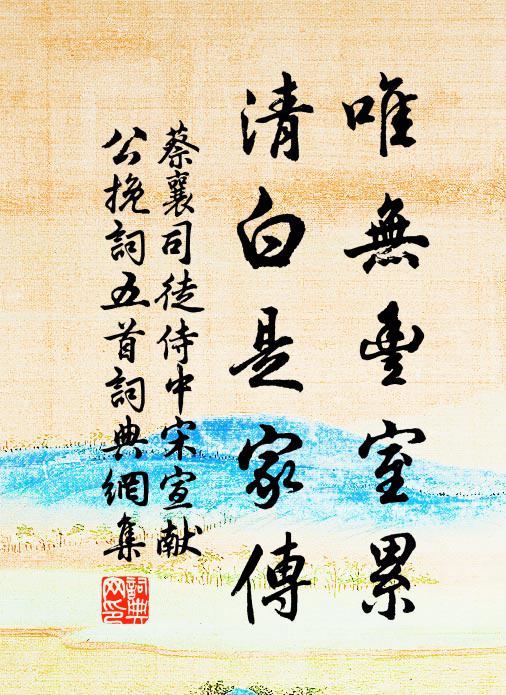 唯無豐室累
清白是家傳
蔡襄司徒侍中宋宣献
公挽詞五首詞典網集
詞典